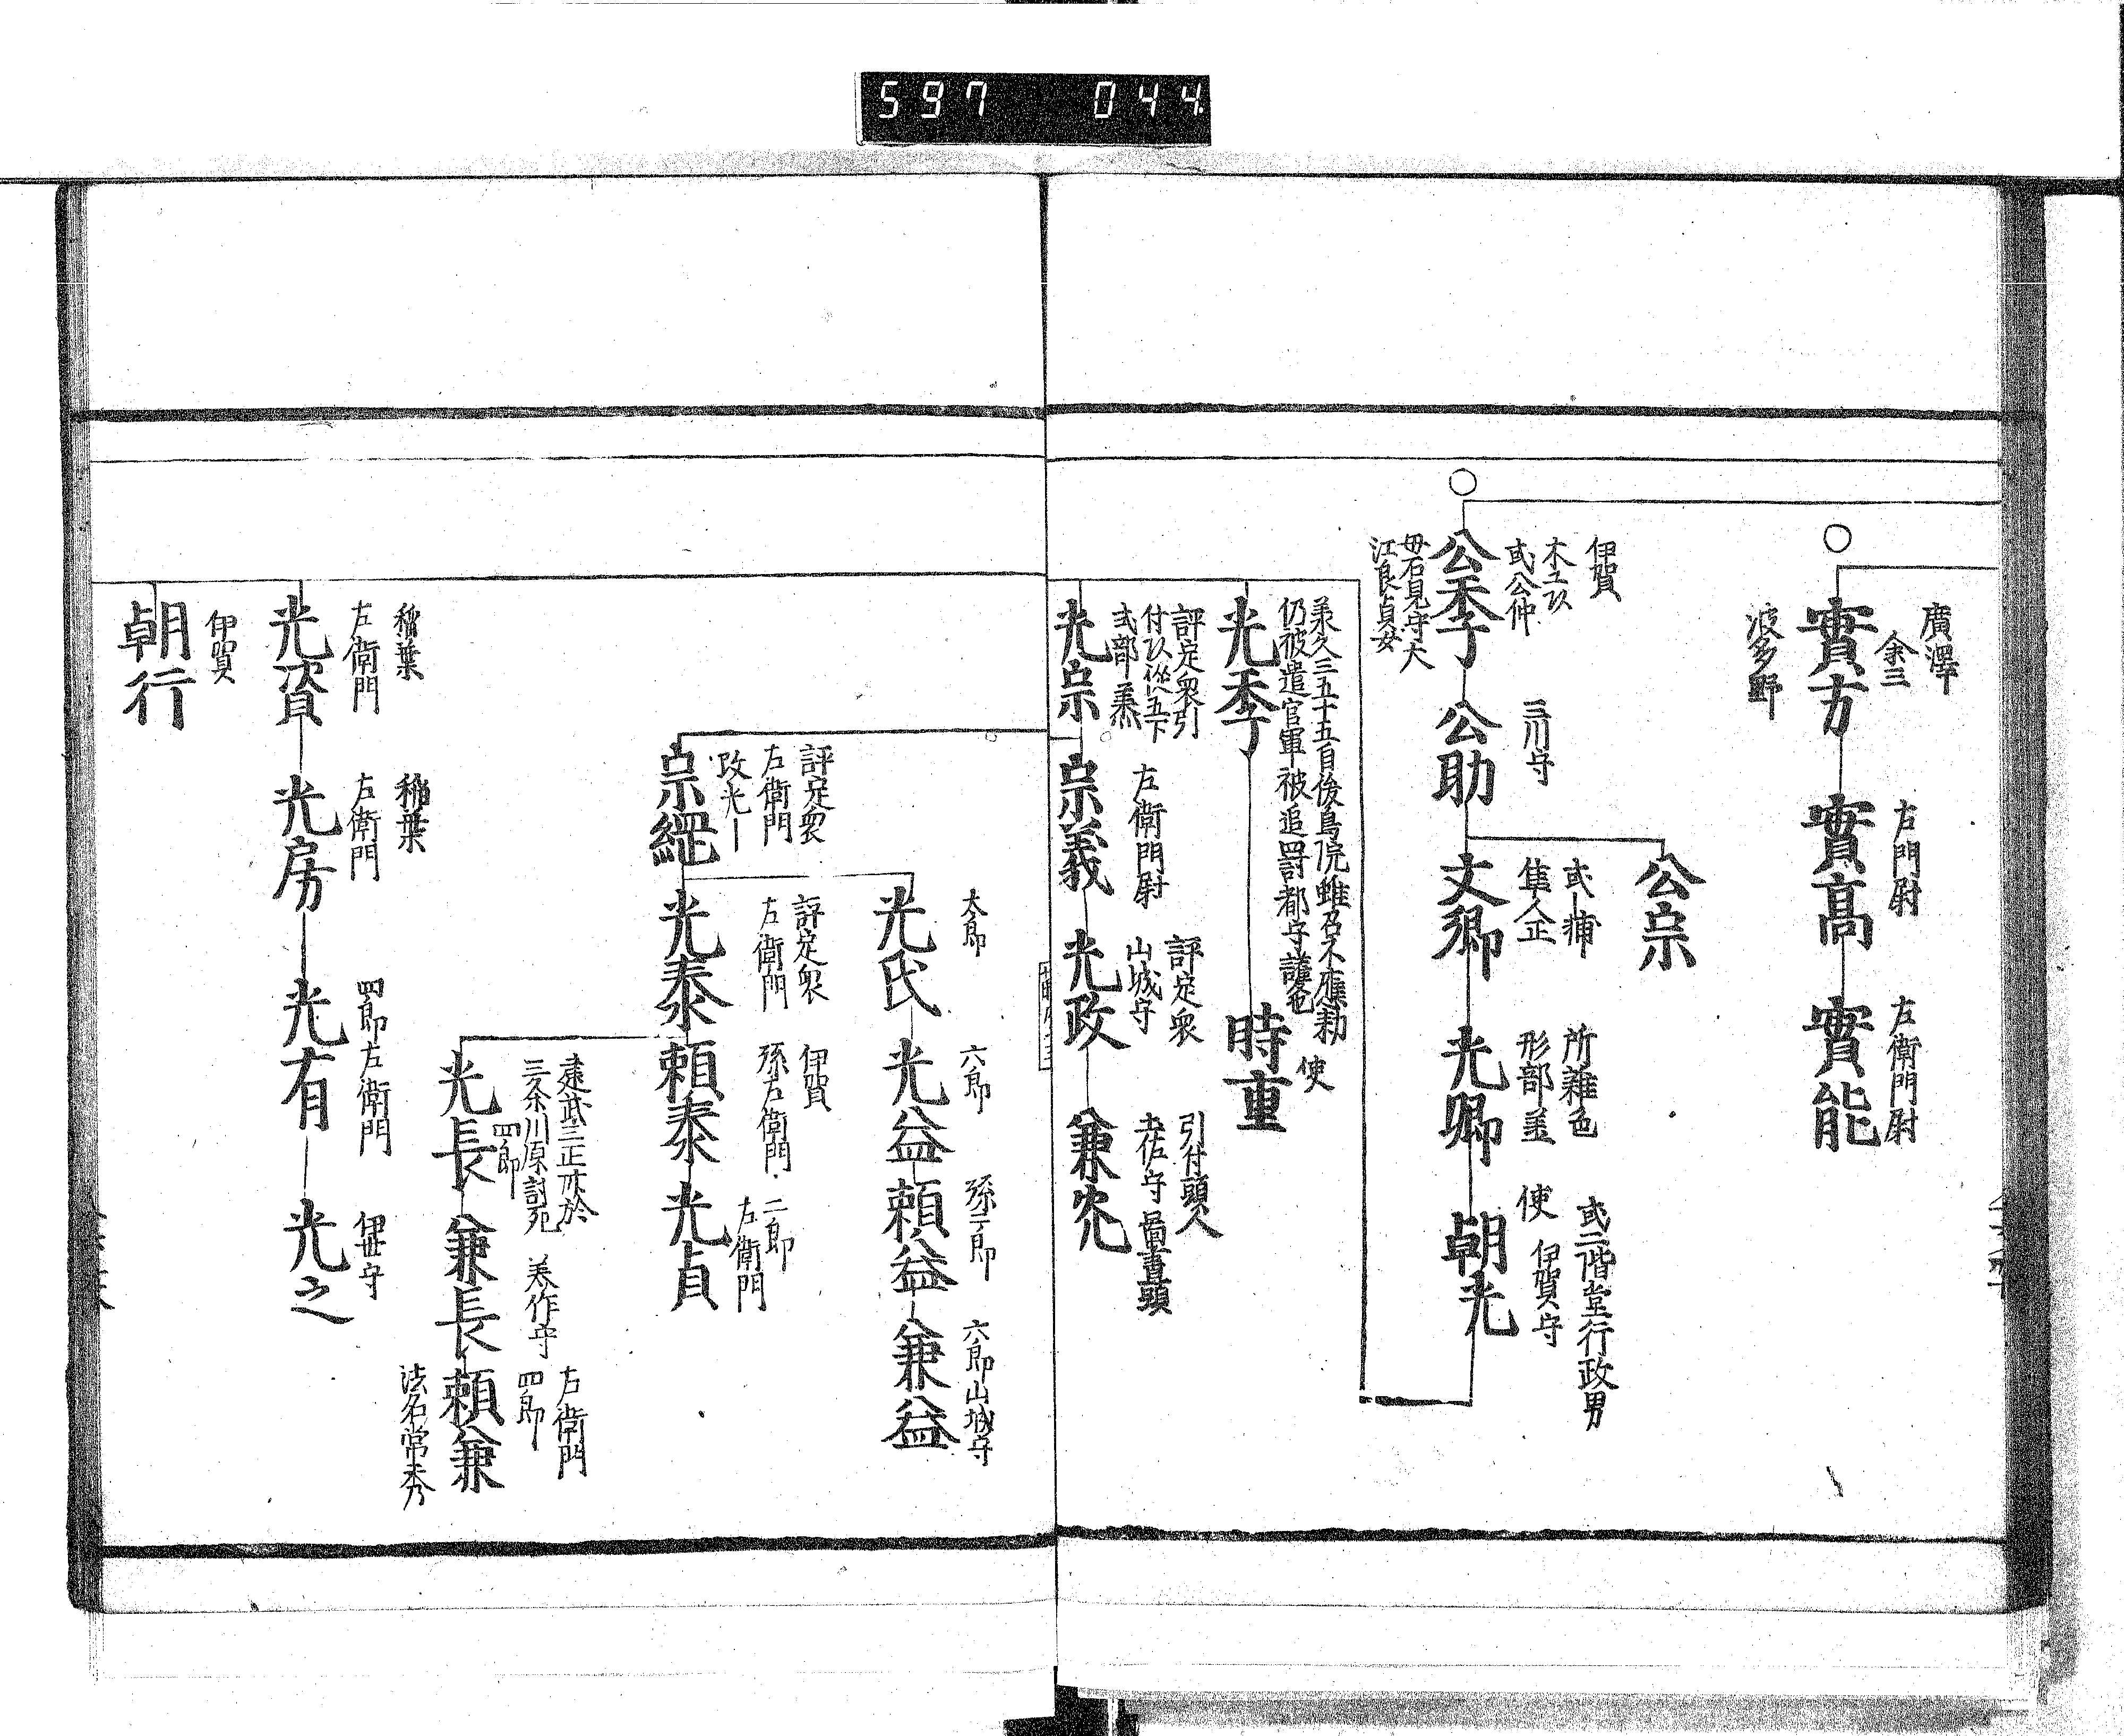 597 044
廣澤
余三
實方
波多野
右門尉
實高
左衛門尉
實能
伊賀
木工以
或公仲
公季
母石見守大
江良貞女
三川守
公助
公宗
或捕
隼人正
文郷
所雜色
形部
光郷
或二階堂行政男
使 伊賀守
朝光
承久三五十五自後鳥院雖召不應勅
仍被遣官軍被追罸都守護也
光季
使
時重
評定衆引
付以從五下
式部
光宗
左衛門尉
宗義
評定衆
山城守
光政
引付頭人
土佐守 圖書頭
兼光
評定衆
左衛門
改光一
宗綱
太郎
光氏
六郎
光益
孫二郎
頼益
六郎山城守
兼益
評定衆
左衛門
光泰
伊賀
孫左衛門
頼泰
二郎
左衛門
光貞
建武三正於
三条川原討死
四郎
光長
美作守
兼長
左衛門
四郎
頼兼
法名常秀
稲葉
左衛門
光資
稲葉
左衛門
光房
四郎左衛門
光有
伊世守
光之
伊賀
朝行